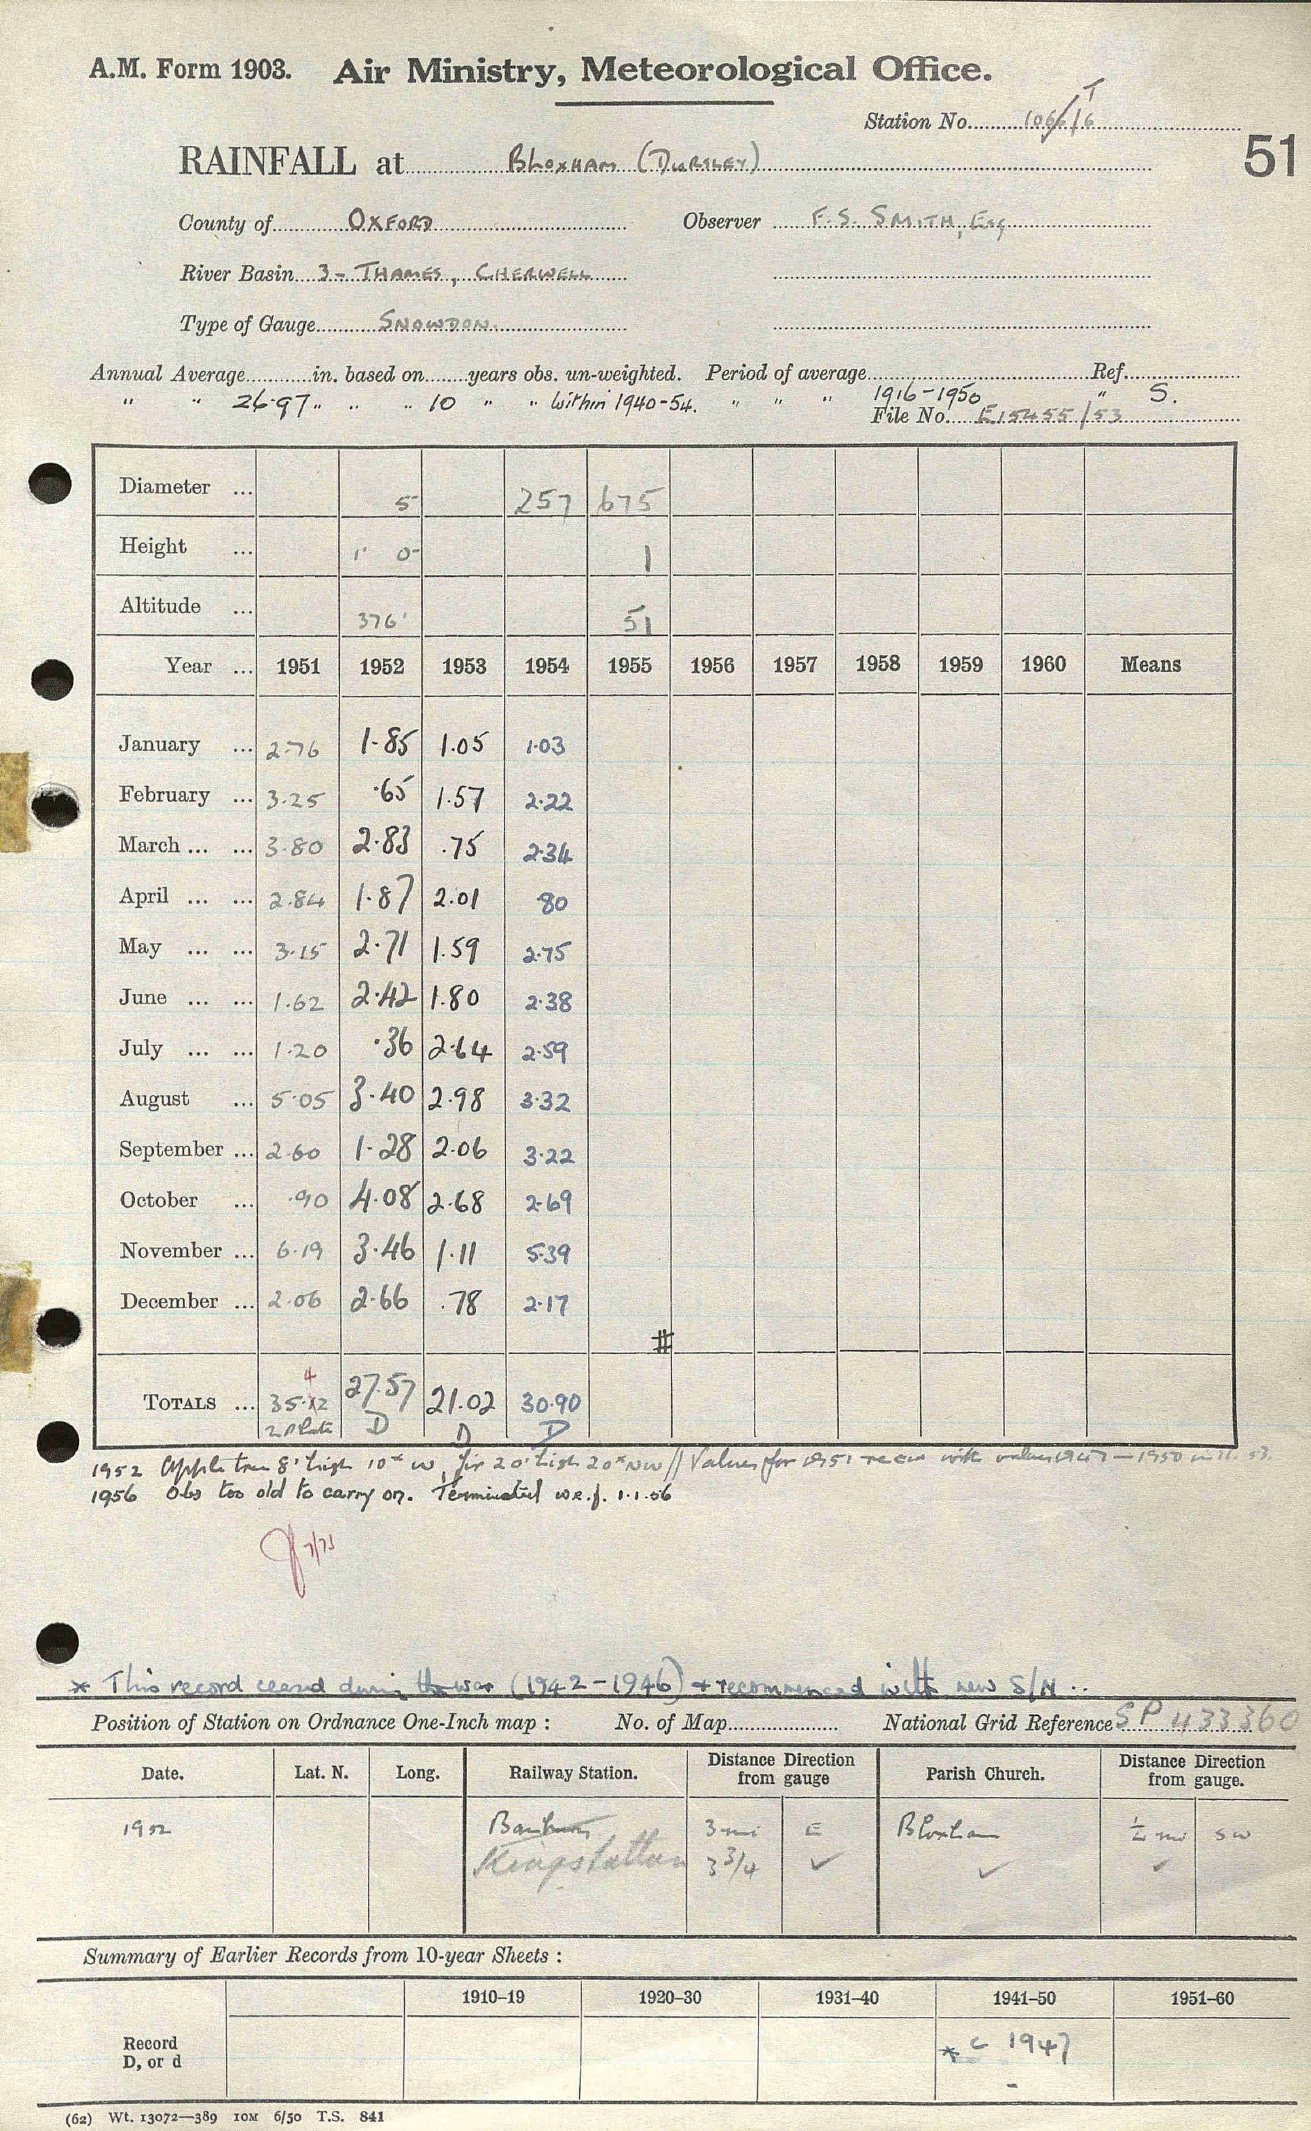 A.M. Form 1903. Air Ministry, Meteorological Office.
Station No. T
51
RAINFALL at Bloxham (Dursley)
County of Oxford Observer F.S. Smith, Esq
River Basin 3 - Thames, Cherwell
Type of Gauge Snowdon
Annual Average in. based on years obs. un-weighted. Period of average Ref.
" " 26.97 " " " 10 " " Within 1940-54. " " " 1916-1950 " S.
File No. E15455/53
Diameter ... 5 257 675
Height ... 1' 0" 1
Altitude ... 376' 51
Year ... 1951 1952 1953 1954 1955 1956 1957 1958 1959 1960 Means
January ... 2.76 1.85 1.05 1.03
February ... 3.25 .65 1.57 2.22
March ... ... 3.80 2.83 .75 2.34
April ... ... 2.84 1.87 2.01 .80
May ... ... 3.15 2.71 1.59 2.75
June ... ... 1.62 2.42 1.80 2.38
July ... ... 1.20 .36 2.64 2.59
August ... 5.05 3.40 2.98 3.32
September ... 2.60 1.28 2.06 3.22
October ... .90 4.08 2.68 2.69
November ... 6.19 3.46 1.11 5.39
December ... 2.06 2.66 .78 2.17
#
4
Totals ... 35.12 27.57 21.02 30.90
D D D
1952 Apple tree 8' high 10x W, fir 20' high 20x NW // Values for 1951 with values 1947-1950 53.
1956 Obs too old to carry on. Terminated w.e.f. 1.1.56
7/73
* This record ceased during the war (1942-1946) & recommenced with new S/N ..
Position of Station on Ordnance One-Inch map : No. of Map National Grid Reference SP 433360
Date. Lat. N. Long. Railway Station. Distance Direction from gauge Parish Church. Distance Direction from gauge.
1952 Banbury 3 mi E Bloxham ½ mi SW
3 3/4 ✓ ✓ ✓
Summary of Earlier Records from 10-year Sheets :
1910–19 1920–30 1931–40 1941–50 1951–60
Record
D, or d
* c 1947
-
(62) Wt. 13072—389 10M 6/50 T.S. 841